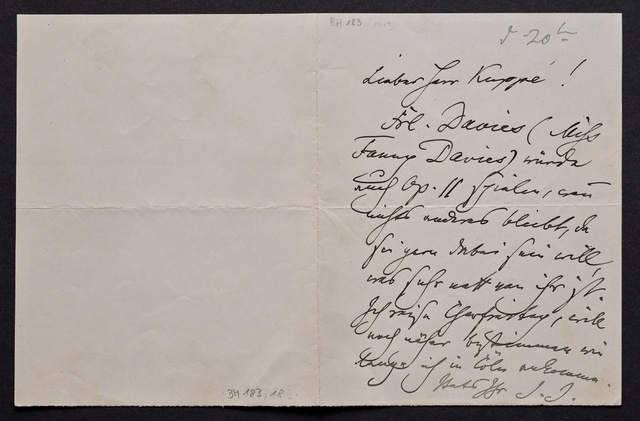 BH 183
d 20ten
Lieber Herr Kuyper!
Frl. Davies (Miss
Fanny Davies) würde
auch Op. 11 spielen, wenn
nichts anderes bleibt, da
sie gern dabei sein will,
was sehr nett von ihr ist
Ich reise Charfreitag, will
noch näher bestimmen wie
lange ich in Cöln ankomme.
Stets Ihr J. J.
BH 183, 18